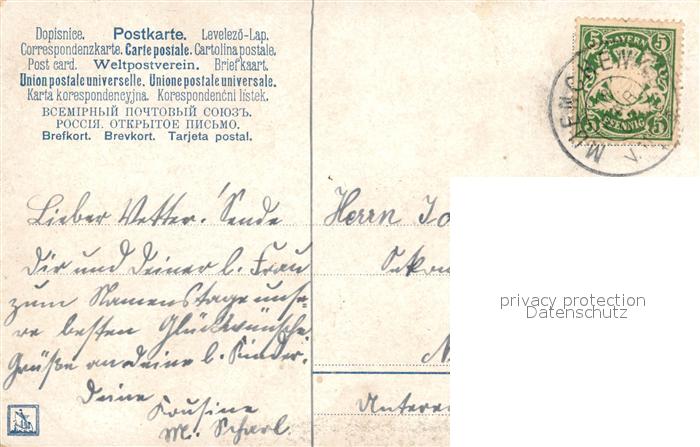 Dopisnice. Postkarte. Levelező-Lap.
Correspondenzkarte. Carte postale. Cartolina postale.
Post card. Weltpostverein. Briefkaart.
Union postale universelle. Unione postale universale.
Karta korespondencyjna. Korespondenční lístek.
ВСЕМІРНЫЙ ПОЧТОВЫЙ СОЮЗЪ.
РОССІЯ. ОТКРЫТОЕ ПИСЬМО.
Brefkort. Brevkort. Tarjeta postal.
BAYERN
5 5
5 5
PFENNIG
MUENCHEN
Lieber Vetter! Sende
Dir und Deiner l. Frau
zum Namenstage unse-
re besten Glückwünsche
Grüße an deine l. Kinder.
Deine
Kousine
M. Scharl.
Herrn
privacy protection
Datenschutz